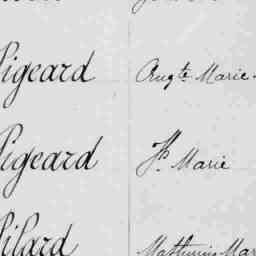 Pigeard Augte Marie
Pigeard Fs Marie
Pilard Mathurin Mar